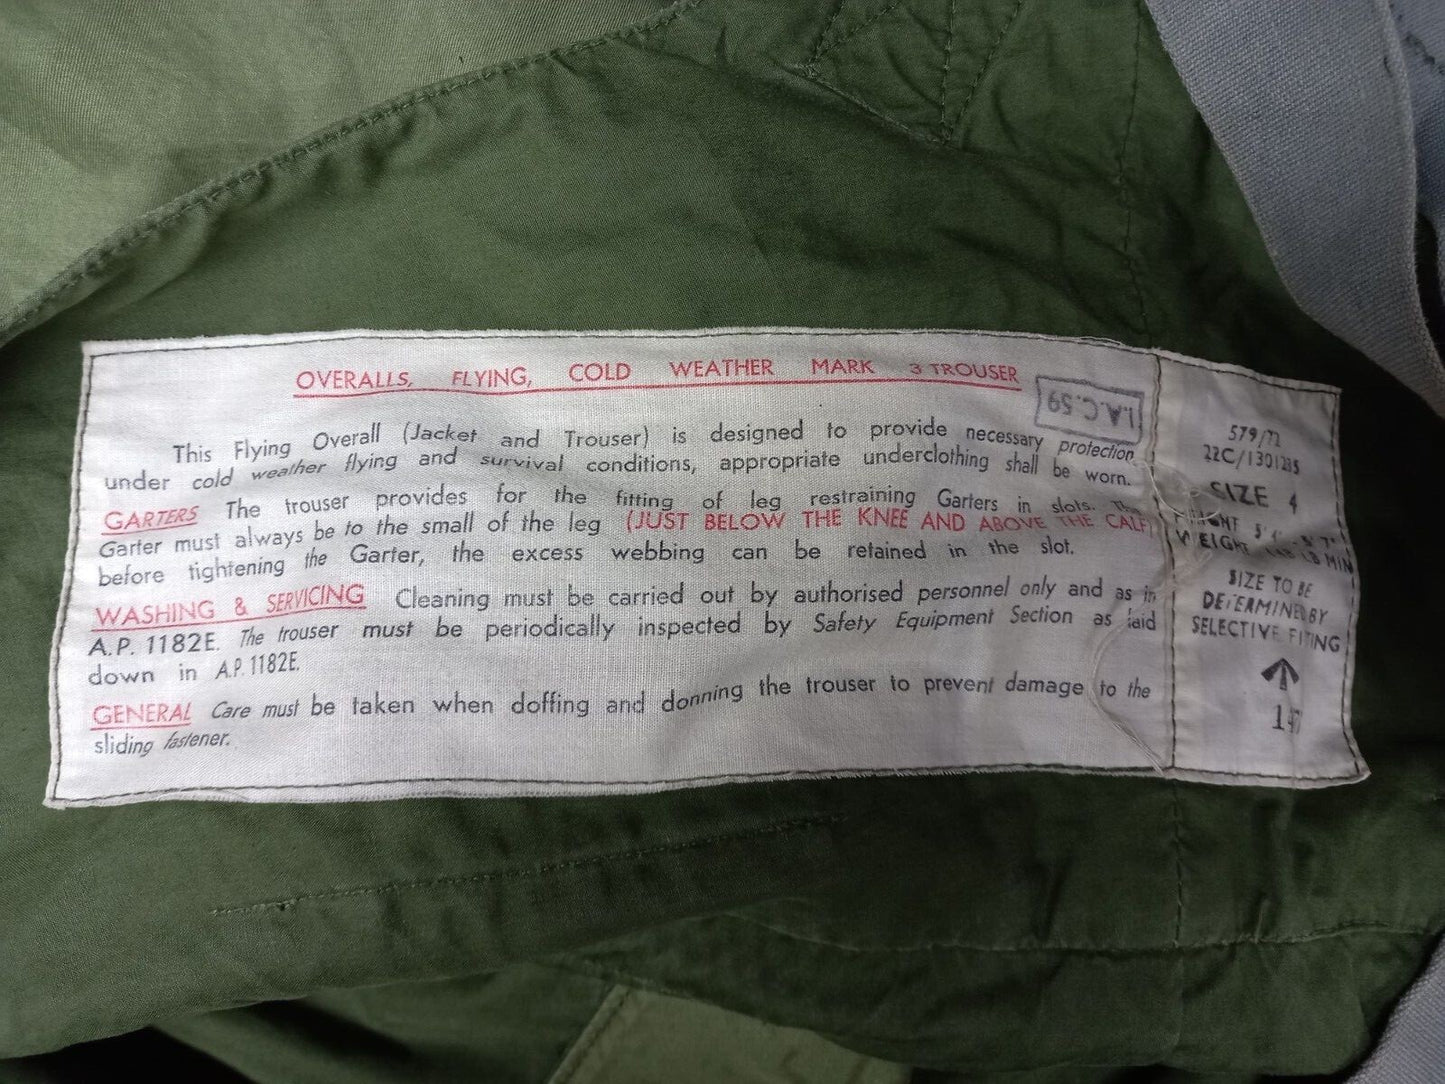 OVERALLS, FLYING, COLD WEATHER MARK 3 TROUSER
I.A.C. 59
This Flying Overall (Jacket and Trouser) is designed to provide necessary protection
under cold weather flying and survival conditions, appropriate underclothing shall be worn.
GARTERS The trouser provides for the fitting of leg restraining Garters in slots. The
Garter must always be to the small of the leg (JUST BELOW THE KNEE AND ABOVE THE CALF)
before tightening the Garter, the excess webbing can be retained in the slot.
WASHING & SERVICING Cleaning must be carried out by authorised personnel only and as in
A.P. 1182E. The trouser must be periodically inspected by Safety Equipment Section as laid
down in A.P. 1182E.
GENERAL Care must be taken when doffing and donning the trouser to prevent damage to the
sliding fastener.
579/72
22C/1301285
SIZE 4
HEIGHT 5' 5' 7"
WEIGHT LB MIN
SIZE TO BE
DETERMINED BY
SELECTIVE FITTING
147